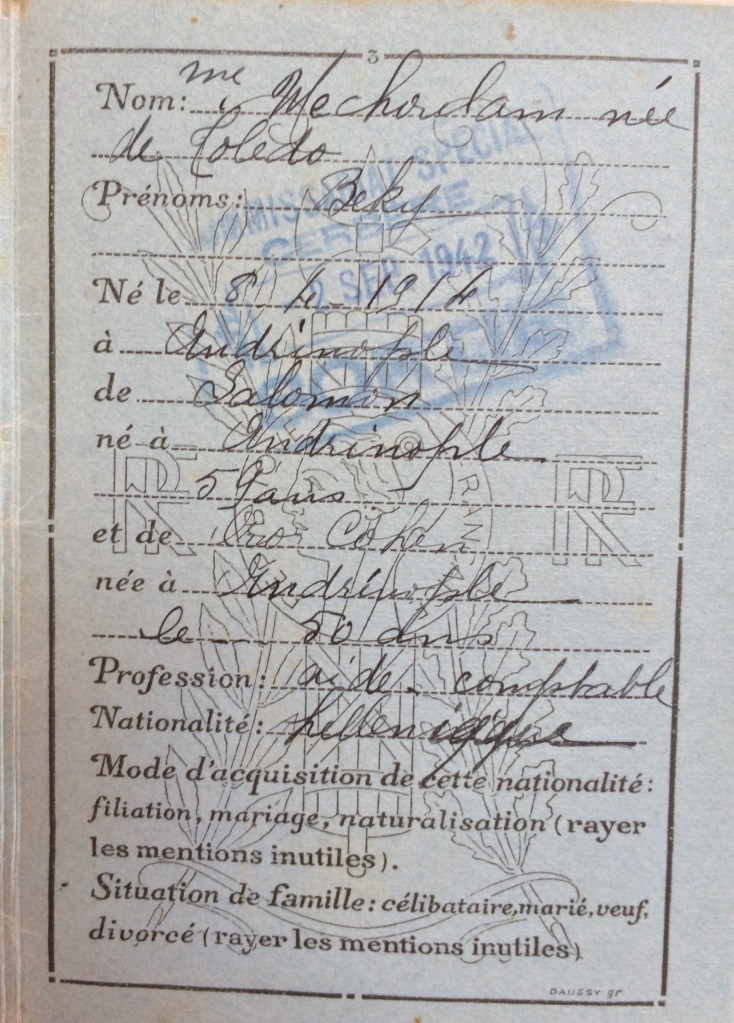 3
Nom: Me Mechoulam née
de Toledo
Prénoms: Beky
Né le 8 4 1914
à Andrinople
de Salomon
né à Andrinople
59 ans
et de Cohen
née à Andrinople
le 50 ans
Profession: aide-comptable
Nationalité: hellenique
Mode d'acquisition de cette nationalité:
filiation, mariage, naturalisation (rayer
les mentions inutiles).
Situation de famille: célibataire, marié, veuf,
divorcé (rayer les mentions inutiles)
DAUSSY gr
COMMISSARIAT SPECIAL
CERBERE
SEP 1942
RF
RF